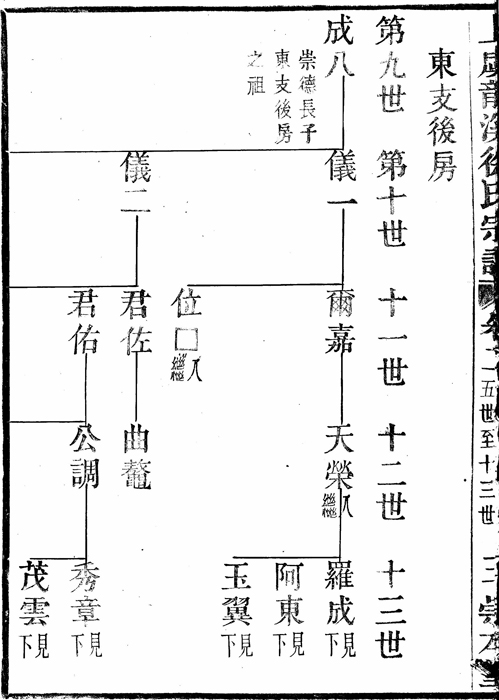 徐氏宗譜
五世至十三世
東支後房
第九世 第十世 十一世 十二世 十三世
成八
崇德長子
東支後房
之祖
儀一
爾嘉
天榮 入繼
羅成 見下
阿東 見下
玉翼 見下
位□ 入繼
儀二
君佐
曲鼇
君佑
公調
秀章 見下
茂雲 見下